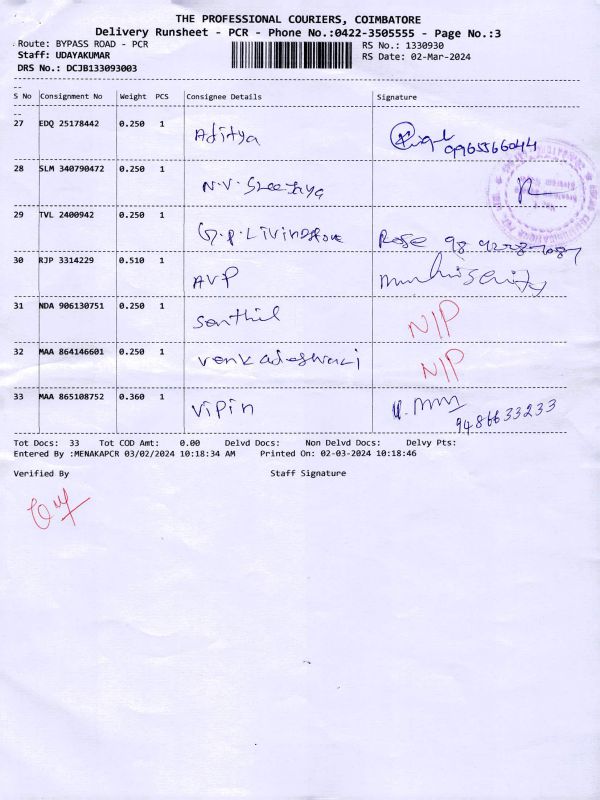 THE PROFESSIONAL COURIERS, COIMBATORE
Delivery Runsheet - PCR - Phone No.:0422-3505555 - Page No.:3
Route: BYPASS ROAD - PCR RS No.: 1330930
Staff: UDAYAKUMAR RS Date: 02-Mar-2024
DRS No.: DCJB133093003
S No Consignment No Weight PCS Consignee Details Signature
27 EDQ 25178442 0.250 1 Aditya
28 SLM 340790472 0.250 1 N.V.
29 TVL 2400942 0.250 1 G.P. Rose
30 RJP 3314229 0.510 1 AVP
31 NDA 906130751 0.250 1 Senthil N/P
32 MAA 864146601 0.250 1 N/P
33 MAA 865108752 0.360 1 Vipin
9486633233
Tot Docs: 33 Tot COD Amt: 0.00 Delvd Docs: Non Delvd Docs: Delvy Pts:
Entered By :MENAKAPCR 03/02/2024 10:18:34 AM Printed On: 02-03-2024 10:18:46
Verified By Staff Signature